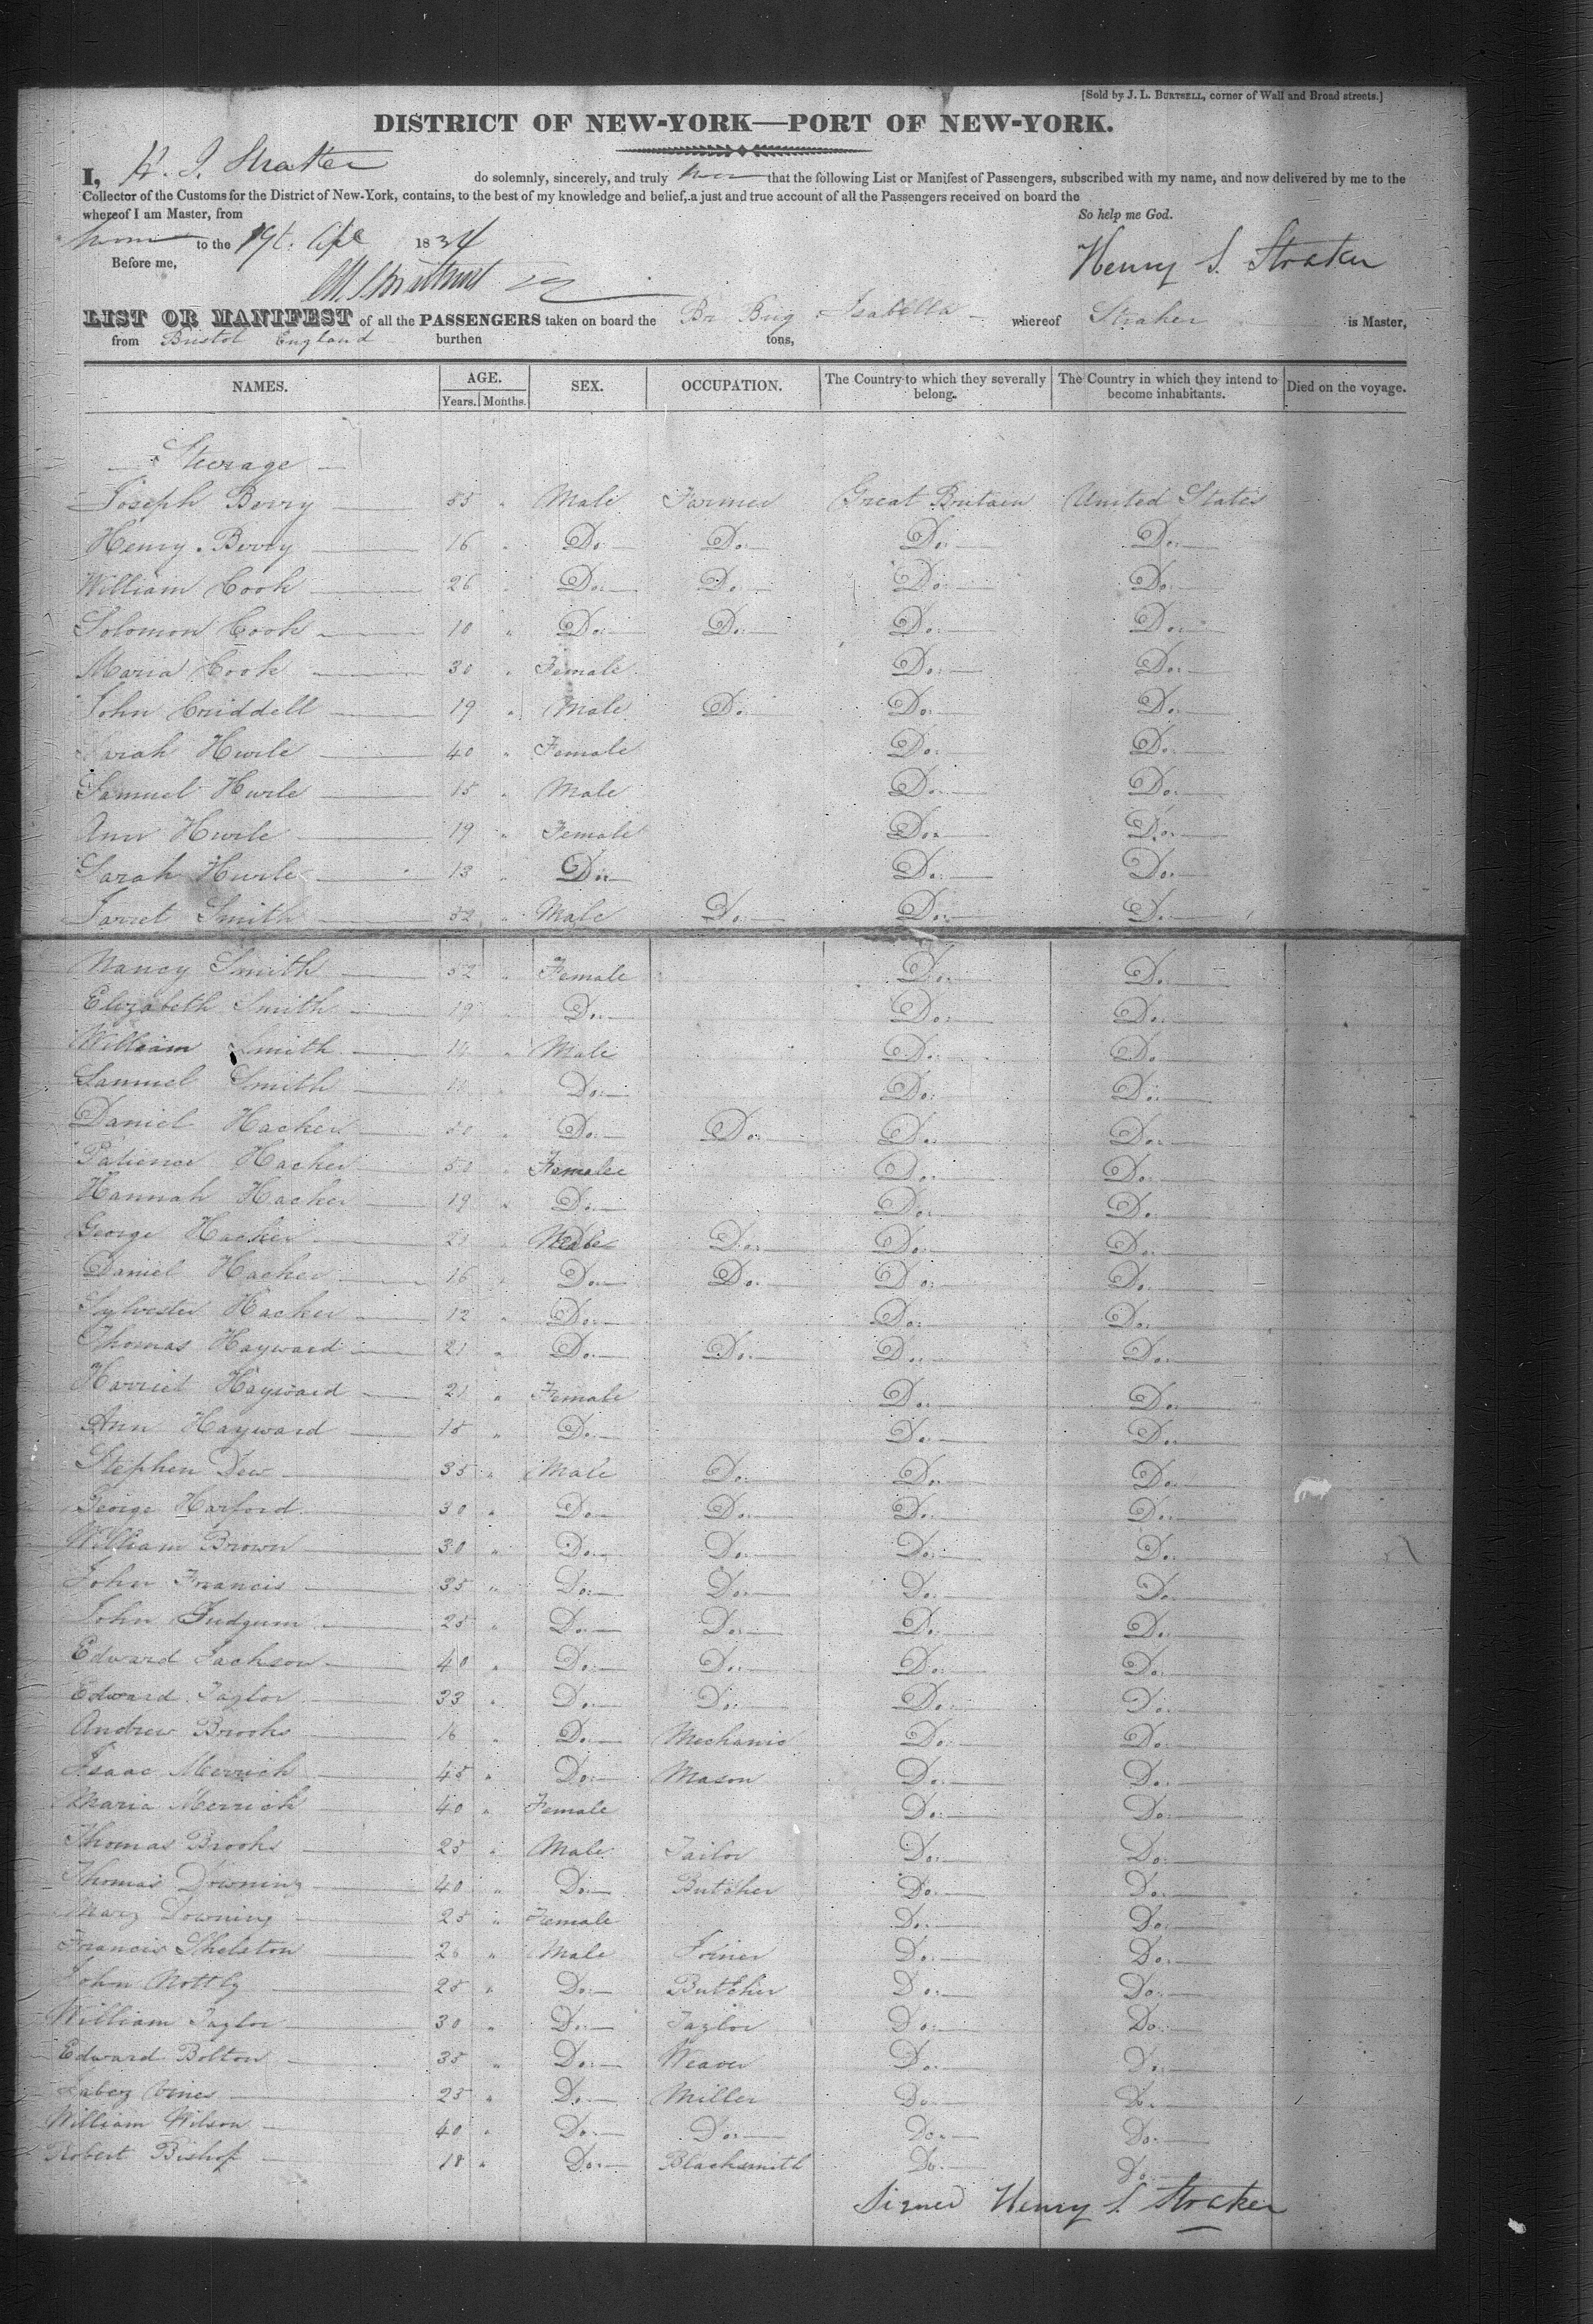 [Sold by J. L. BURTSELL, corner of Wall and Broad streets.]
DISTRICT OF NEW-YORK—PORT OF NEW-YORK.
I, H. S. Straker do solemnly, sincerely, and truly that the following List or Manifest of Passengers, subscribed with my name, and now delivered by me to the
Collector of the Customs for the District of New-York, contains, to the best of my knowledge and belief, a just and true account of all the Passengers received on board the
whereof I am Master, from So help me God.
to the 19t. Apl 1834
Before me, Henry S. Straker
LIST OR MANIFEST of all the PASSENGERS taken on board the Br Brig Isabella whereof Straker is Master,
from Bristol England burthen tons,
NAMES. AGE. SEX. OCCUPATION. The Country to which they severally belong. The Country in which they intend to become inhabitants. Died on the voyage.
Years. Months.
Steerage
Joseph Berry 55 " Male Farmer Great Britain United States
Henry Berry 16 " Do Do Do Do
William Cook 26 " Do Do Do Do
Solomon Cook 10 " Do Do Do Do
Maria Cook 30 " Female Do Do
John Criddell 19 " Male Do Do Do
Sarah Hurle 40 " Female Do Do
Samuel Hurle 15 " Male Do Do
Ann Hurle 19 " Female Do Do
Sarah Hurle 13 " Do Do Do
Jarret Smith 52 " Male Do Do Do
Nancy Smith 52 " Female Do Do
Elizabeth Smith 19 " Do Do Do
William Smith " Male Do Do
Samuel Smith " Do Do Do
Daniel Hacker 50 " Do Do Do Do
Patience Hacker 50 " Female Do Do
Hannah Hacker 19 " Do Do Do
George Hacker " Male Do Do Do
Daniel Hacker 16 " Do Do Do Do
Sylvester Hacker 12 " Do Do Do
Thomas Hayward 21 " Do Do Do Do
Harriet Hayward 21 " Female Do Do
Ann Hayward 18 " Do Do Do
Stephen Dew 35 " Male Do Do Do
George Harford 30 " Do Do Do Do
William Brown 30 " Do Do Do Do
John Francis 35 " Do Do Do Do
John Judgum 25 " Do Do Do Do
Edward Jackson 40 " Do Do Do Do
Edward Taylor 33 " Do Do Do Do
Andrew Brooks 16 " Do Mechanic Do Do
Isaac Merrick 45 " Do Mason Do Do
Maria Merrick 40 " Female Do Do
Thomas Brooks 25 " Male Tailor Do Do
Thomas Downing 40 " Do Butcher Do Do
Mary Downing 25 " Female Do Do
Francis Skelston 26 " Male Joiner Do Do
John Nottly 25 " Do Butcher Do Do
William Taylor 30 " Do Taylor Do Do
Edward Bolton 35 " Do Weaver Do Do
Jabez Vines 25 " Do Miller Do Do
William Wilson 40 " Do Do Do Do
Robert Bishop 18 " Do Blacksmith Do Do
Signed Henry S. Straker